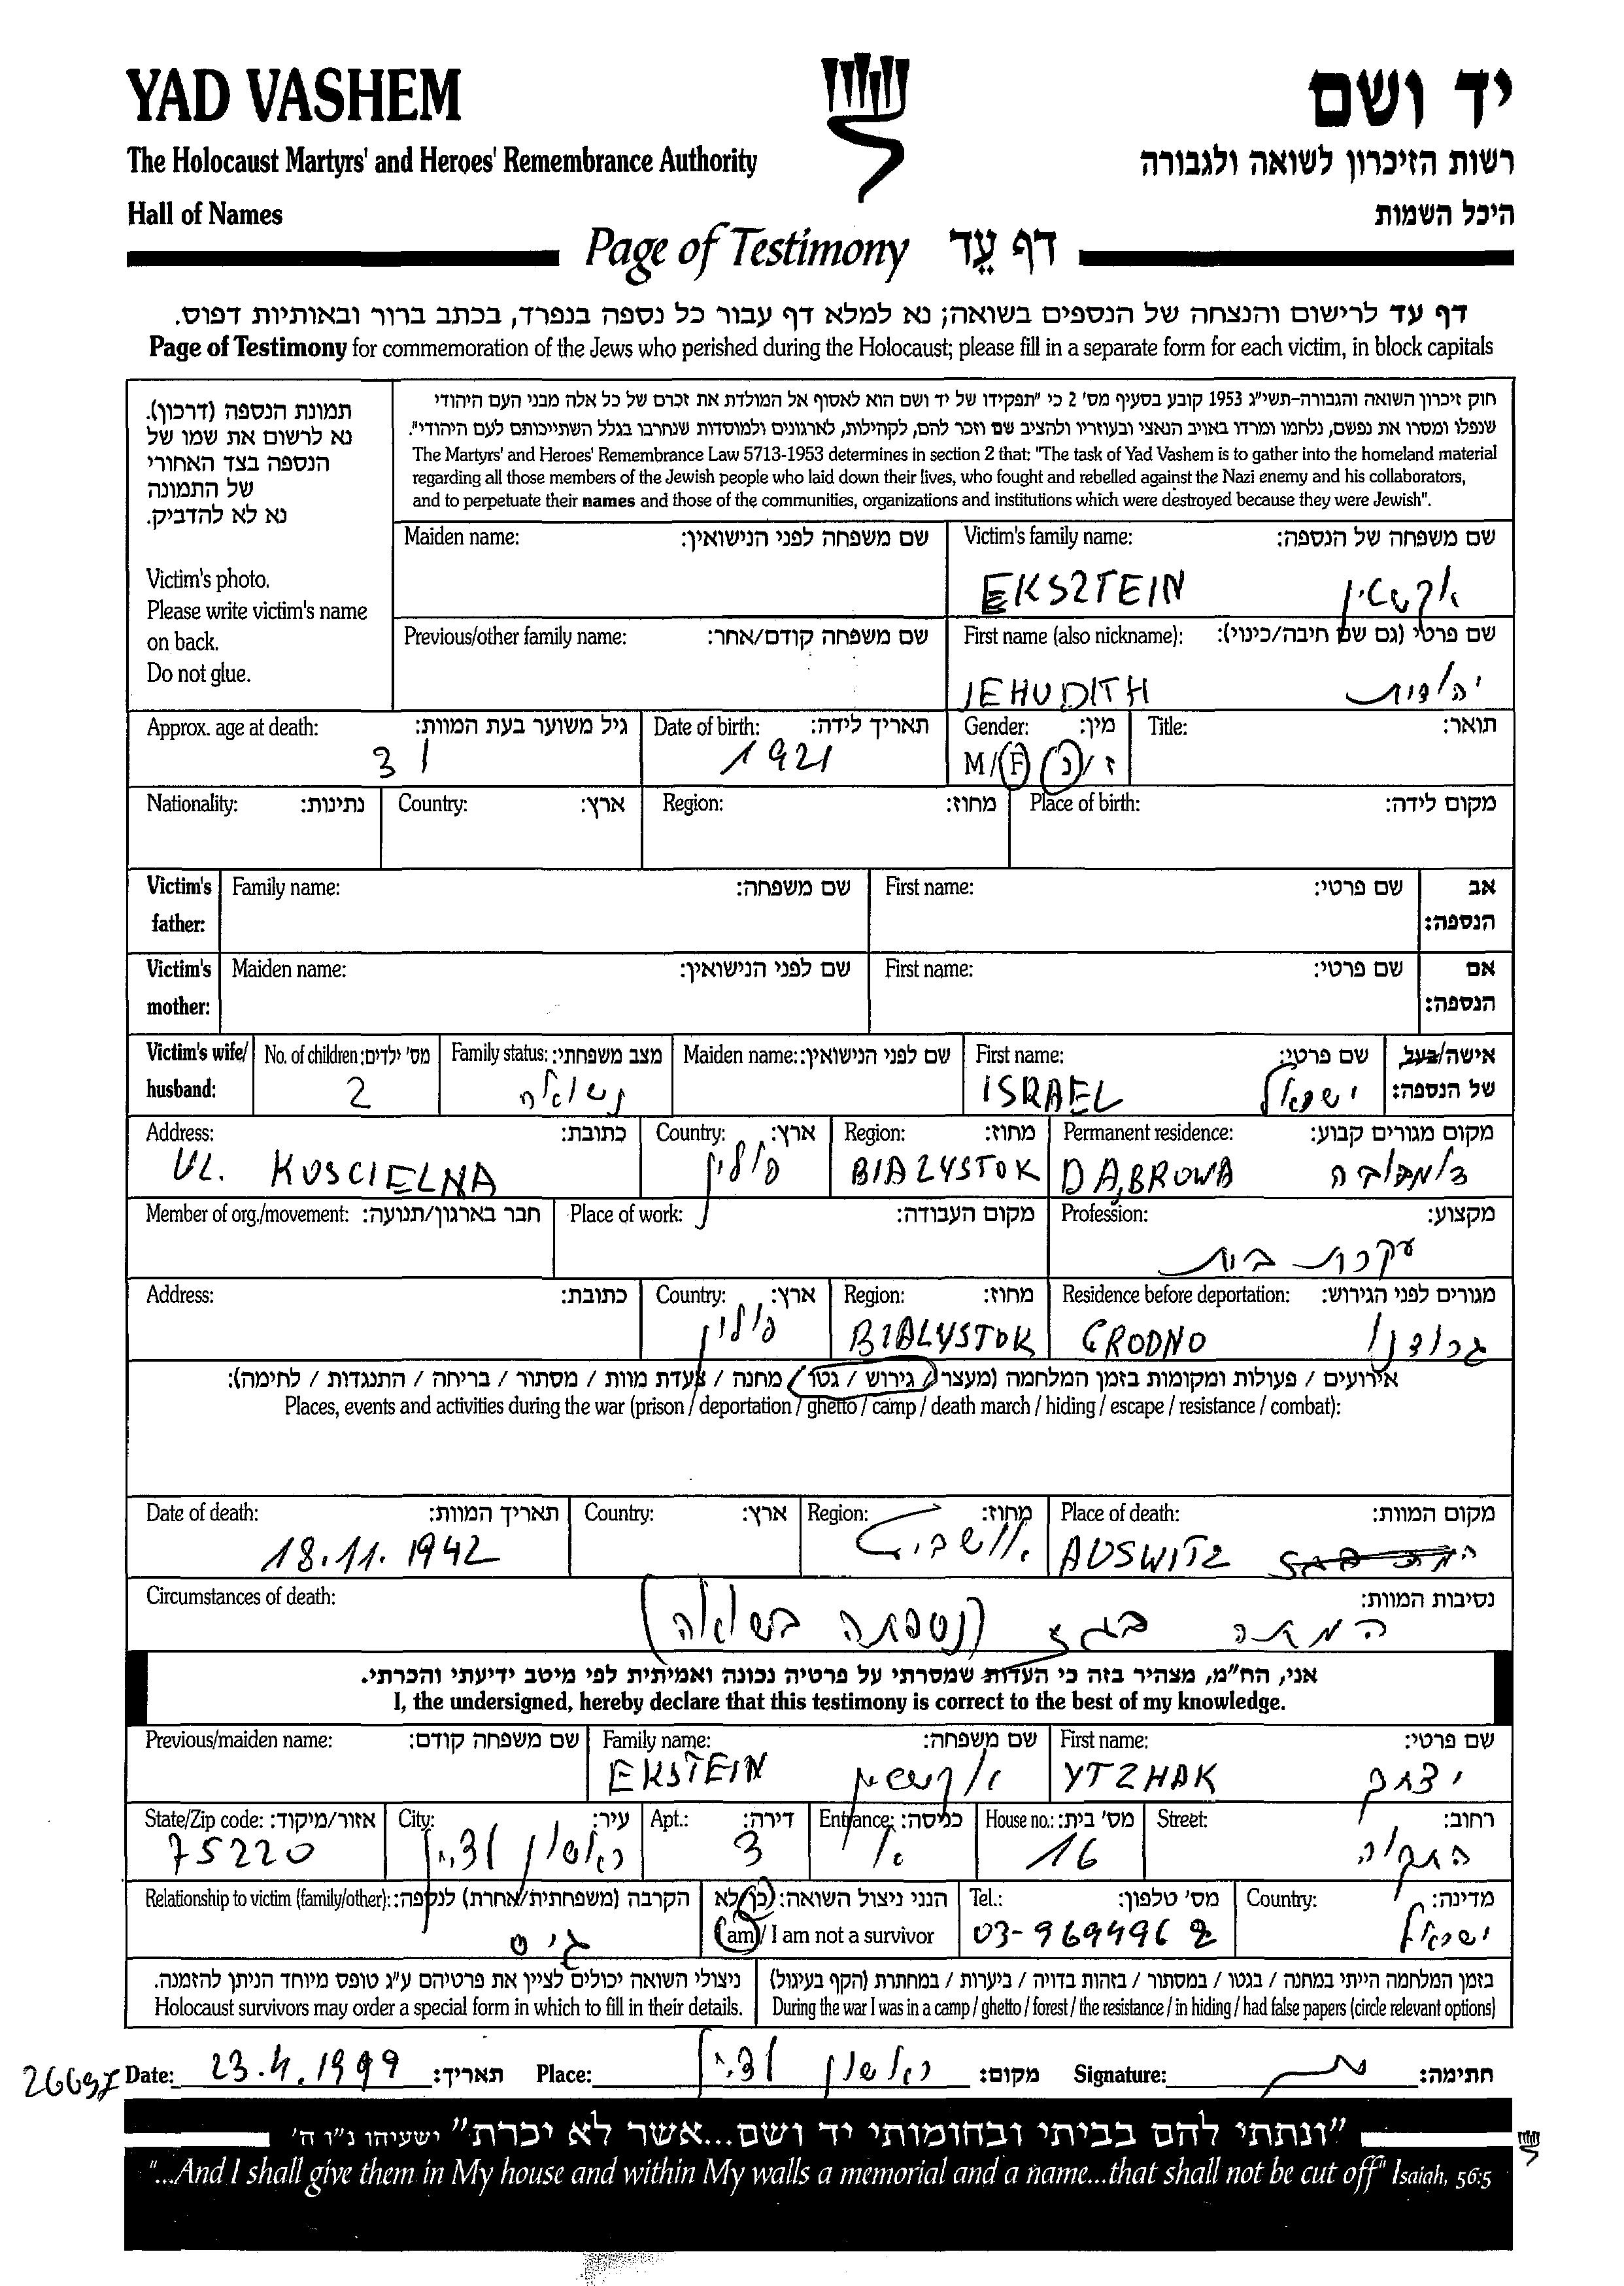 YAD VASHEM
יד ושם
The Holocaust Martyrs' and Heroes' Remembrance Authority
רשות הזיכרון לשואה ולגבורה
Hall of Names
היכל השמות
Page of Testimony דף עֵד
דף עד לרישום והנצחה של הנספים בשואה; נא למלא דף עבור כל נספה בנפרד, בכתב ברור ובאותיות דפוס.
Page of Testimony for commemoration of the Jews who perished during the Holocaust; please fill in a separate form for each victim, in block capitals
תמונת הנספה (דרכון).
נא לרשום את שמו של
הנספה בצד האחורי
של התמונה
נא לא להדביק.
Victim's photo.
Please write victim's name
on back.
Do not glue.
חוק זיכרון השואה והגבורה-תשי"ג 1953 קובע בסעיף מס' 2 כי "תפקידו של יד ושם הוא לאסוף אל המולדת את זכרם של כל אלה מבני העם היהודי
שנפלו ומסרו את נפשם, נלחמו ומרדו באויב הנאצי ובעוזריו ולהציב שם וזכר להם, לקהילות, לארגונים ולמוסדות שנחרבו בגלל השתייכותם לעם היהודי".
The Martyrs' and Heroes' Remembrance Law 5713-1953 determines in section 2 that: "The task of Yad Vashem is to gather into the homeland material
regarding all those members of the Jewish people who laid down their lives, who fought and rebelled against the Nazi enemy and his collaborators,
and to perpetuate their names and those of the communities, organizations and institutions which were destroyed because they were Jewish".
Maiden name: שם משפחה לפני הנישואין:
Victim's family name: שם משפחה של הנספה:
EKSZTEIN אקשטיין
Previous/other family name: שם משפחה קודם/אחר:
First name (also nickname): שם פרטי (גם שם חיבה/כינוי):
JEHUDITH יהודית
Approx. age at death: גיל משוער בעת המוות:
31
Date of birth: תאריך לידה:
1921
Gender: מין:
M/F ז/נ
Title: תואר:
Nationality: נתינות:
Country: ארץ:
Region: מחוז:
Place of birth: מקום לידה:
Victim's father:
Family name: שם משפחה:
First name: שם פרטי:
אב הנספה:
Victim's mother:
Maiden name: שם לפני הנישואין:
First name: שם פרטי:
אם הנספה:
Victim's wife/ husband:
No. of children: מס' ילדים:
2
Family status: מצב משפחתי:
נשואה
Maiden name: שם לפני הנישואין:
First name: שם פרטי:
ISRAEL ישראל
אישה/בעל של הנספה:
Address: כתובת:
UL. KOSCIELNA
Country: ארץ:
פולין
Region: מחוז:
BIALYSTOK
Permanent residence: מקום מגורים קבוע:
DĄBROWA דומברובה
Member of org./movement: חבר בארגון/תנועה:
Place of work: מקום העבודה:
Profession: מקצוע:
עקרת בית
Address: כתובת:
Country: ארץ:
פולין
Region: מחוז:
BIALYSTOK
Residence before deportation: מגורים לפני הגירוש:
GRODNO גרודנו
אירועים / פעולות ומקומות בזמן המלחמה (מעצר / גירוש / גטו / מחנה / צעדת מוות / מסתור / בריחה / התנגדות / לחימה):
Places, events and activities during the war (prison / deportation / ghetto / camp / death march / hiding / escape / resistance / combat):
Date of death: תאריך המוות:
18.11.1942
Country: ארץ:
Region: מחוז:
אושביץ
Place of death: מקום המוות:
AUSWITZ
Circumstances of death: נסיבות המוות:
המתה בגז (נספתה בשואה)
אני, הח"מ, מצהיר בזה כי העדות שמסרתי על פרטיה נכונה ואמיתית לפי מיטב ידיעתי והכרתי.
I, the undersigned, hereby declare that this testimony is correct to the best of my knowledge.
Previous/maiden name: שם משפחה קודם:
Family name: שם משפחה:
EKSTEIN אקשטיין
First name: שם פרטי:
YTZHAK יצחק
State/Zip code: אזור/מיקוד:
75220
City: עיר:
ראשון לציון
Apt.: דירה:
3
Entrance: כניסה:
א'
House no.: מס' בית:
16
Street: רחוב:
Relationship to victim (family/other): הקרבה (משפחתית/אחרת) לנספה:
גיס
הנני ניצול השואה: כן/לא
I am / I am not a survivor
Tel.: מס' טלפון:
03-9699962
Country: מדינה:
ישראל
ניצולי השואה יכולים לציין את פרטיהם ע"ג טופס מיוחד הניתן להזמנה.
Holocaust survivors may order a special form in which to fill in their details.
בזמן המלחמה הייתי במחנה / בגטו / במסתור / בזהות בדויה / ביערות / במחתרת (הקף בעיגול)
During the war I was in a camp / ghetto / forest / the resistance / in hiding / had false papers (circle relevant options)
Date: 23.4.1999 תאריך: Place: ראשון לציון מקום: Signature: חתימה:
"ונתתי להם בביתי ובחומותי יד ושם...אשר לא יכרת" ישעיהו נ"ו ה'
"...And I shall give them in My house and within My walls a memorial and a name...that shall not be cut off" Isaiah, 56:5